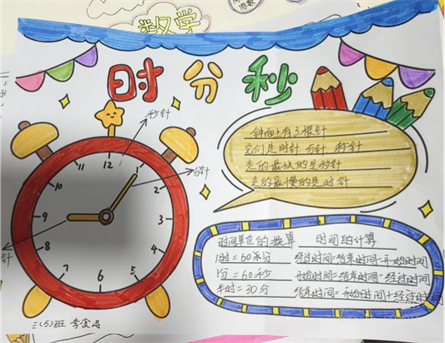 数学
时分秒
秒针
分针
12
1
2
3
4
5
6
7
8
9
10
11
钟面上有3根针
它们是时针 分针 秒针
走的最快的是秒针
走的最慢的是时针
时间单位的换算
1时=60分
1分=60秒
半时=30分
时间的计算
经过时间=结束时间-开始时间
开始时间=结束时间-经过时间
结束时间=开始时间+经过时间
三(5)班